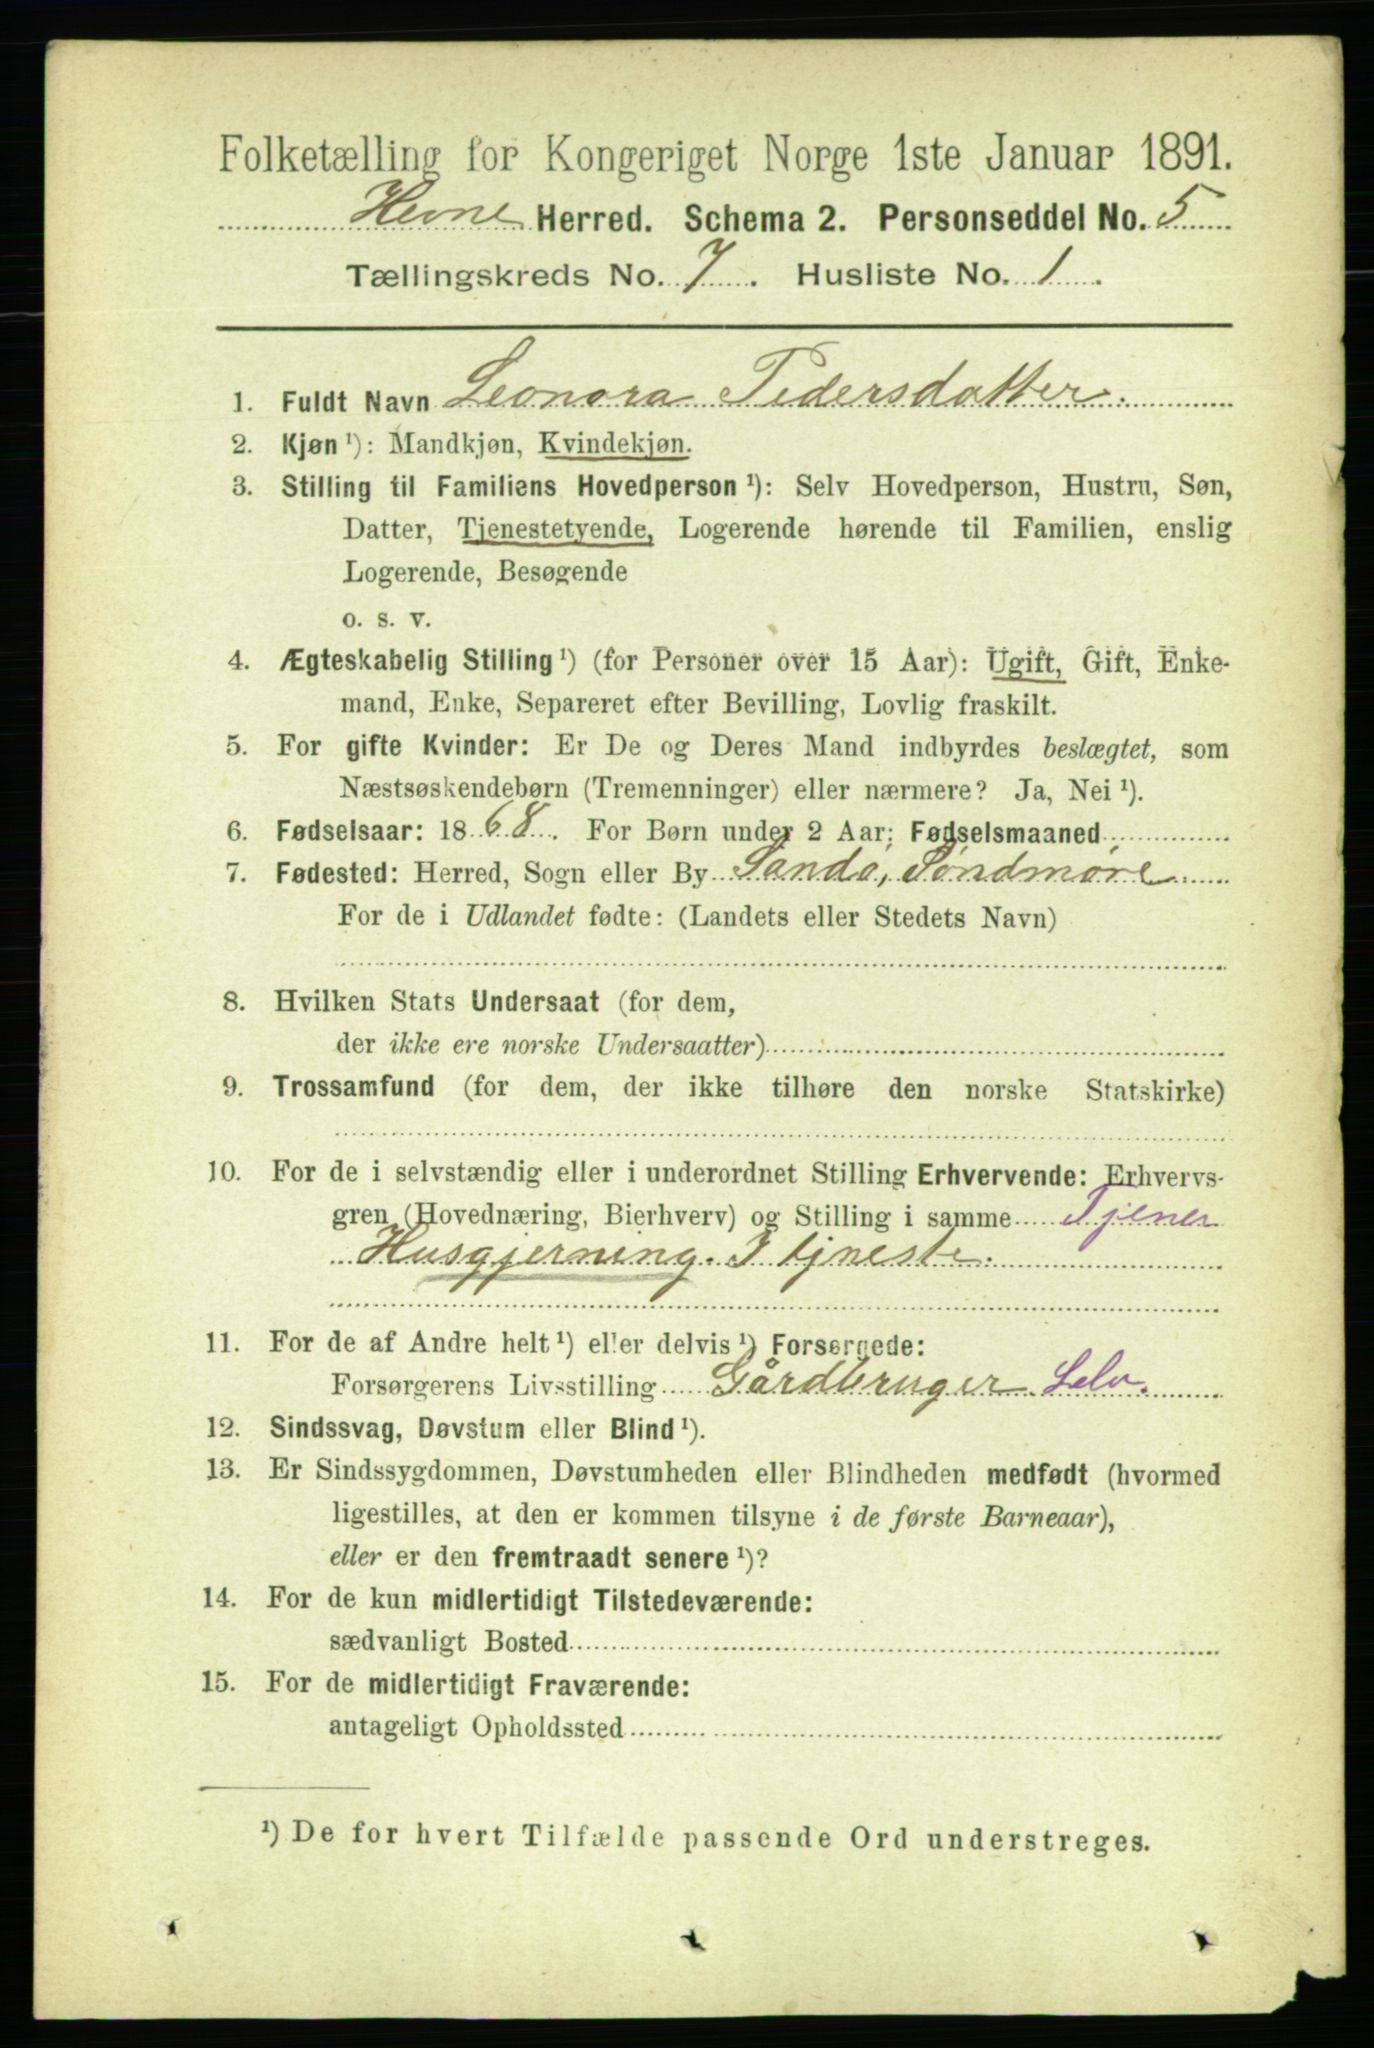 Folketælling for Kongeriget Norge 1ste Januar 1891.
Hevne Herred. Schema 2. Personseddel No. 5
Tællingskreds No. 7. Husliste No. 1.
1. Fuldt Navn Leonora Pedersdatter.
2. Kjøn ¹): Mandkjøn, Kvindekjøn.
3. Stilling til Familiens Hovedperson ¹): Selv Hovedperson, Hustru, Søn,
Datter, Tjenestetyende, Logerende hørende til Familien, enslig
Logerende, Besøgende
o. s. v.
4. Ægteskabelig Stilling ¹) (for Personer over 15 Aar): Ugift, Gift, Enke-
mand, Enke, Separeret efter Bevilling, Lovlig fraskilt.
5. For gifte Kvinder: Er De og Deres Mand indbyrdes beslægtet, som
Næstsøskendebørn (Tremenninger) eller nærmere? Ja, Nei ¹).
6. Fødselsaar: 1868. For Børn under 2 Aar: Fødselsmaaned
7. Fødested: Herred, Sogn eller By Sandø, Søndmøre
For de i Udlandet fødte: (Landets eller Stedets Navn)
8. Hvilken Stats Undersaat (for dem,
der ikke ere norske Undersaatter)
9. Trossamfund (for dem, der ikke tilhøre den norske Statskirke)
10. For de i selvstændig eller i underordnet Stilling Erhvervende: Erhvervs-
gren (Hovednæring, Bierhverv) og Stilling i samme Tjener
Husgjerning. I tjneste.
11. For de af Andre helt ¹) eller delvis ¹) Forsørgede:
Forsørgerens Livsstilling Gårdbruger Selv.
12. Sindssvag, Døvstum eller Blind ¹).
13. Er Sindssygdommen, Døvstumheden eller Blindheden medfødt (hvormed
ligestilles, at den er kommen tilsyne i de første Barneaar),
eller er den fremtraadt senere ¹)?
14. For de kun midlertidigt Tilstedeværende:
sædvanligt Bosted
15. For de midlertidigt Fraværende:
antageligt Opholdssted
¹) De for hvert Tilfælde passende Ord understreges.